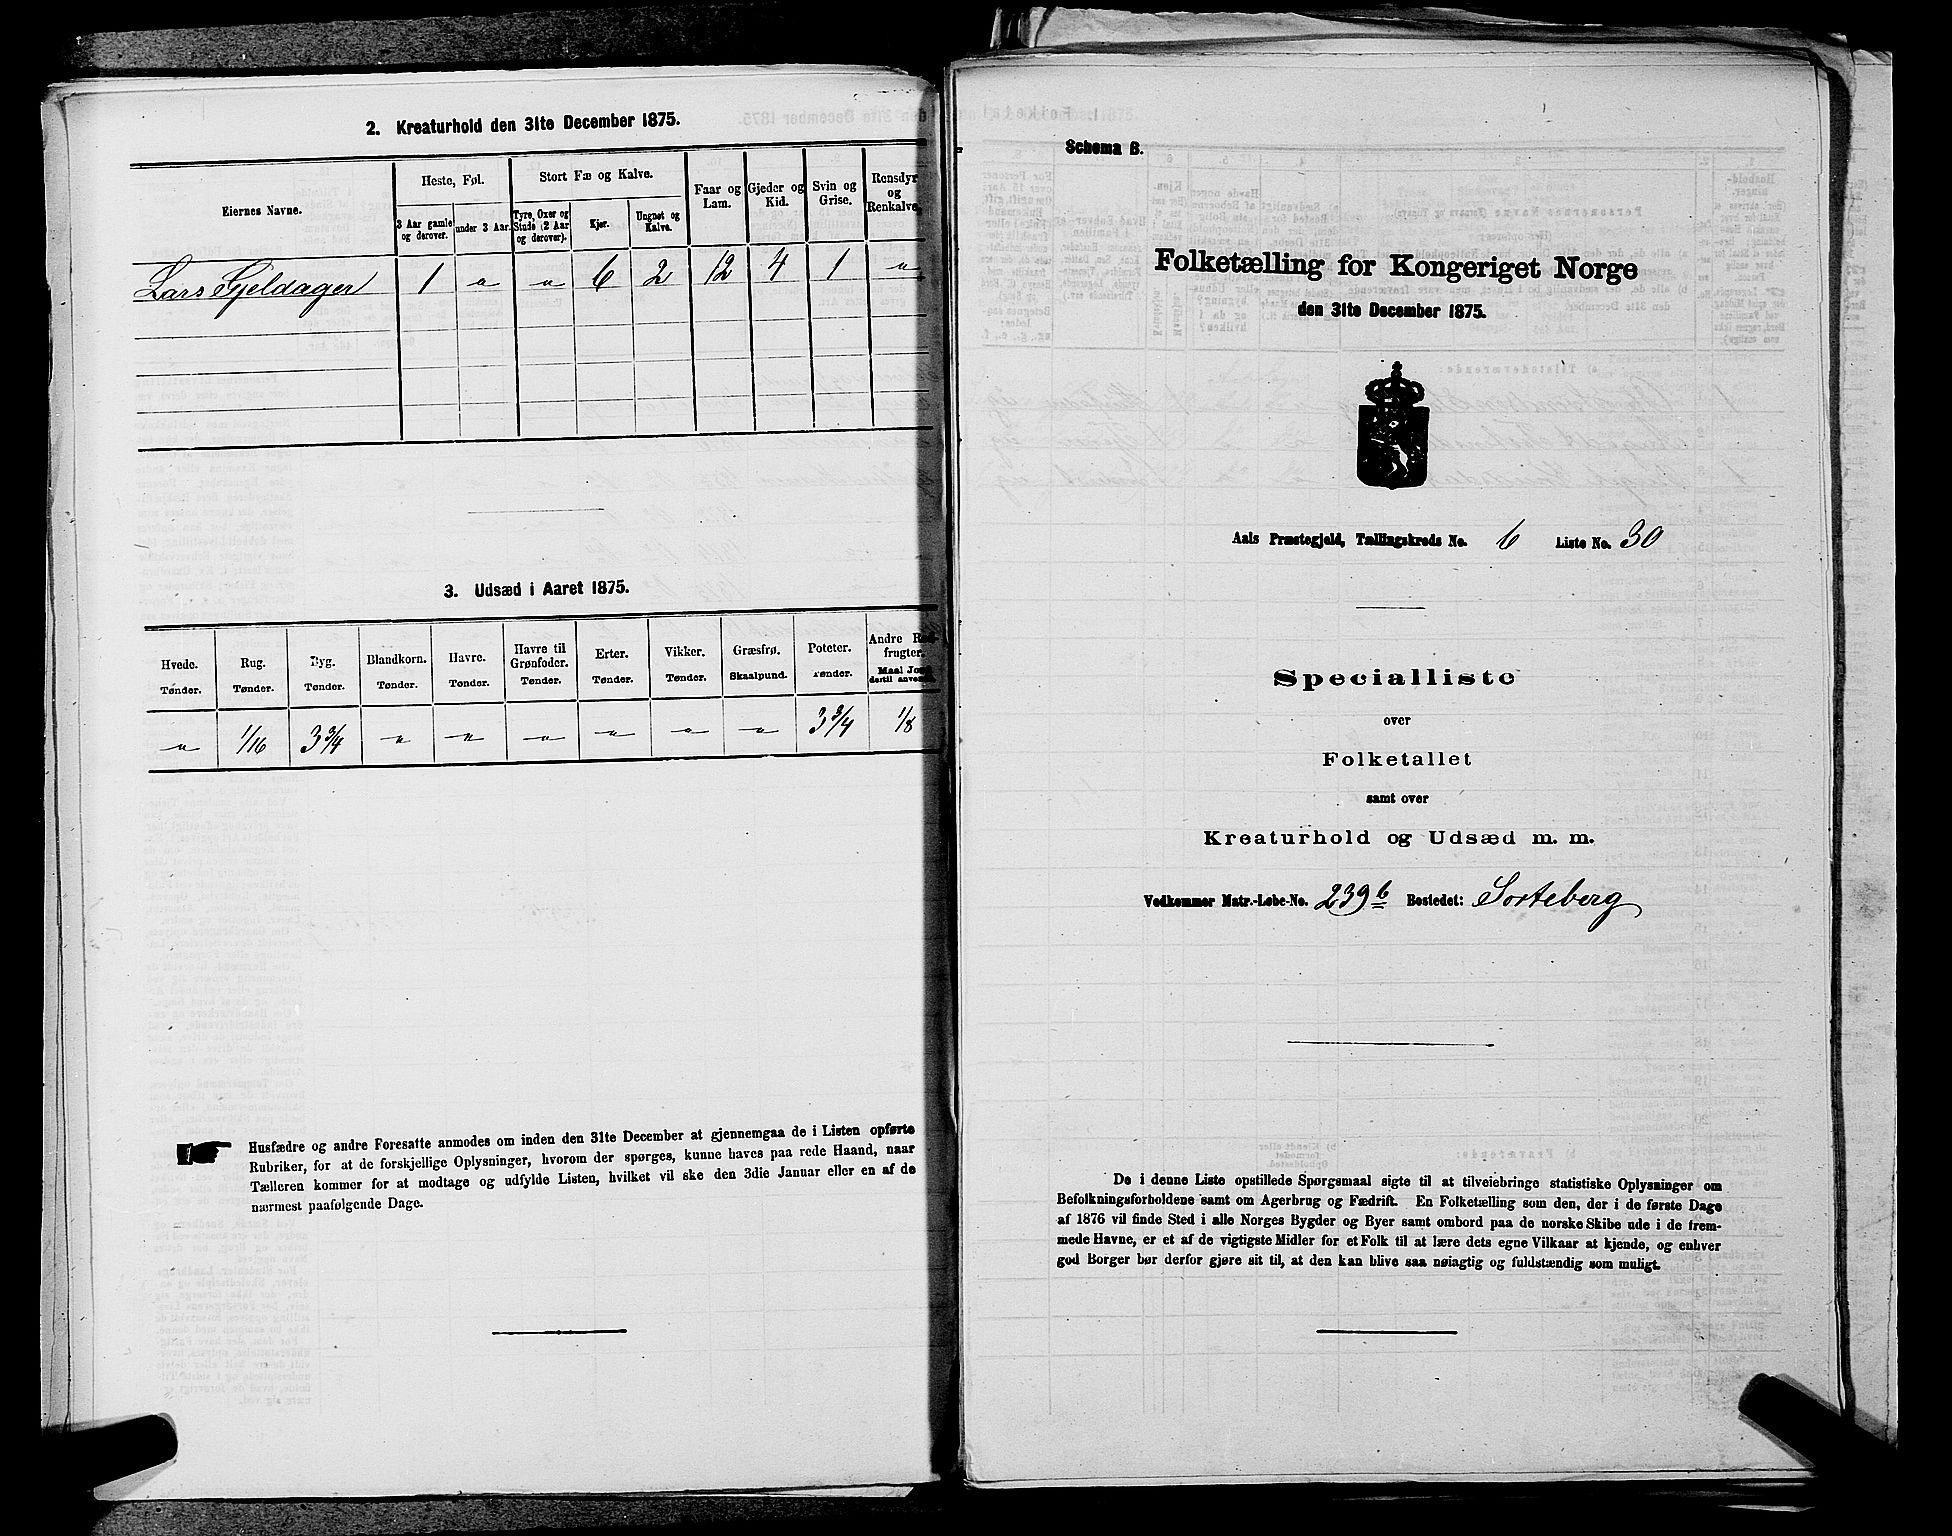 2. Kreaturhold den 31te December 1875.
Eiernes Navne.
Heste, Føl.
Stort Fæ og Kalve.
Faar og Lam.
Gjeder og Kid.
Svin og Grise.
Rensdyr og Renkalve.
3 Aar gamle og derover.
under 3 Aar.
Tyre, Oxer og Stude (2 Aar og derover).
Kjør.
Ungnøt og Kalve.
Lars Gjeldager 1 " " 6 2 12 4 1 "
3. Udsæd i Aaret 1875.
Hvede. Rug. Byg. Blandkorn. Havre. Havre til Grønfoder. Erter. Vikker. Græsfrø. Poteter. Andre Rodfrugter.
Tønder. Tønder. Tønder. Tønder. Tønder. Tønder. Tønder. Tønder. Skaalpund. Tønder. Maal Jord dertil anvendt.
" 1/16 3 3/4 " " " " " " 3 3/4 1/8
Husfædre og andre Foresatte anmodes om inden den 31te December at gjennemgaa de i Listen opførte
Rubriker, for at de forskjellige Oplysninger, hvorom der spørges, kunne haves paa rede Haand, naar
Tælleren kommer for at modtage og udfylde Listen, hvilket vil ske den 3die Januar eller en af de
nærmest paafølgende Dage.
Schema B.
Folketælling for Kongeriget Norge
den 31te December 1875.
Aals Præstegjeld, Tællingskreds No. 6 Liste No. 30
Specialliste
over
Folketallet
samt over
Kreaturhold og Udsæd m. m.
Vedkommer Matr.-Løbe-No. 239 b Bostedet: Sorteberg
De i denne Liste opstillede Spørgsmaal sigte til at tilveiebringe statistiske Oplysninger om
Befolkningsforholdene samt om Agerbrug og Fædrift. En Folketælling som den, der i de første Dage
af 1876 vil finde Sted i alle Norges Bygder og Byer samt ombord paa de norske Skibe ude i de frem-
mede Havne, er et af de vigtigste Midler for et Folk til at lære dets egne Vilkaar at kjende, og enhver
god Borger bør derfor gjøre sit til, at den kan blive saa nøiagtig og fuldstændig som muligt.